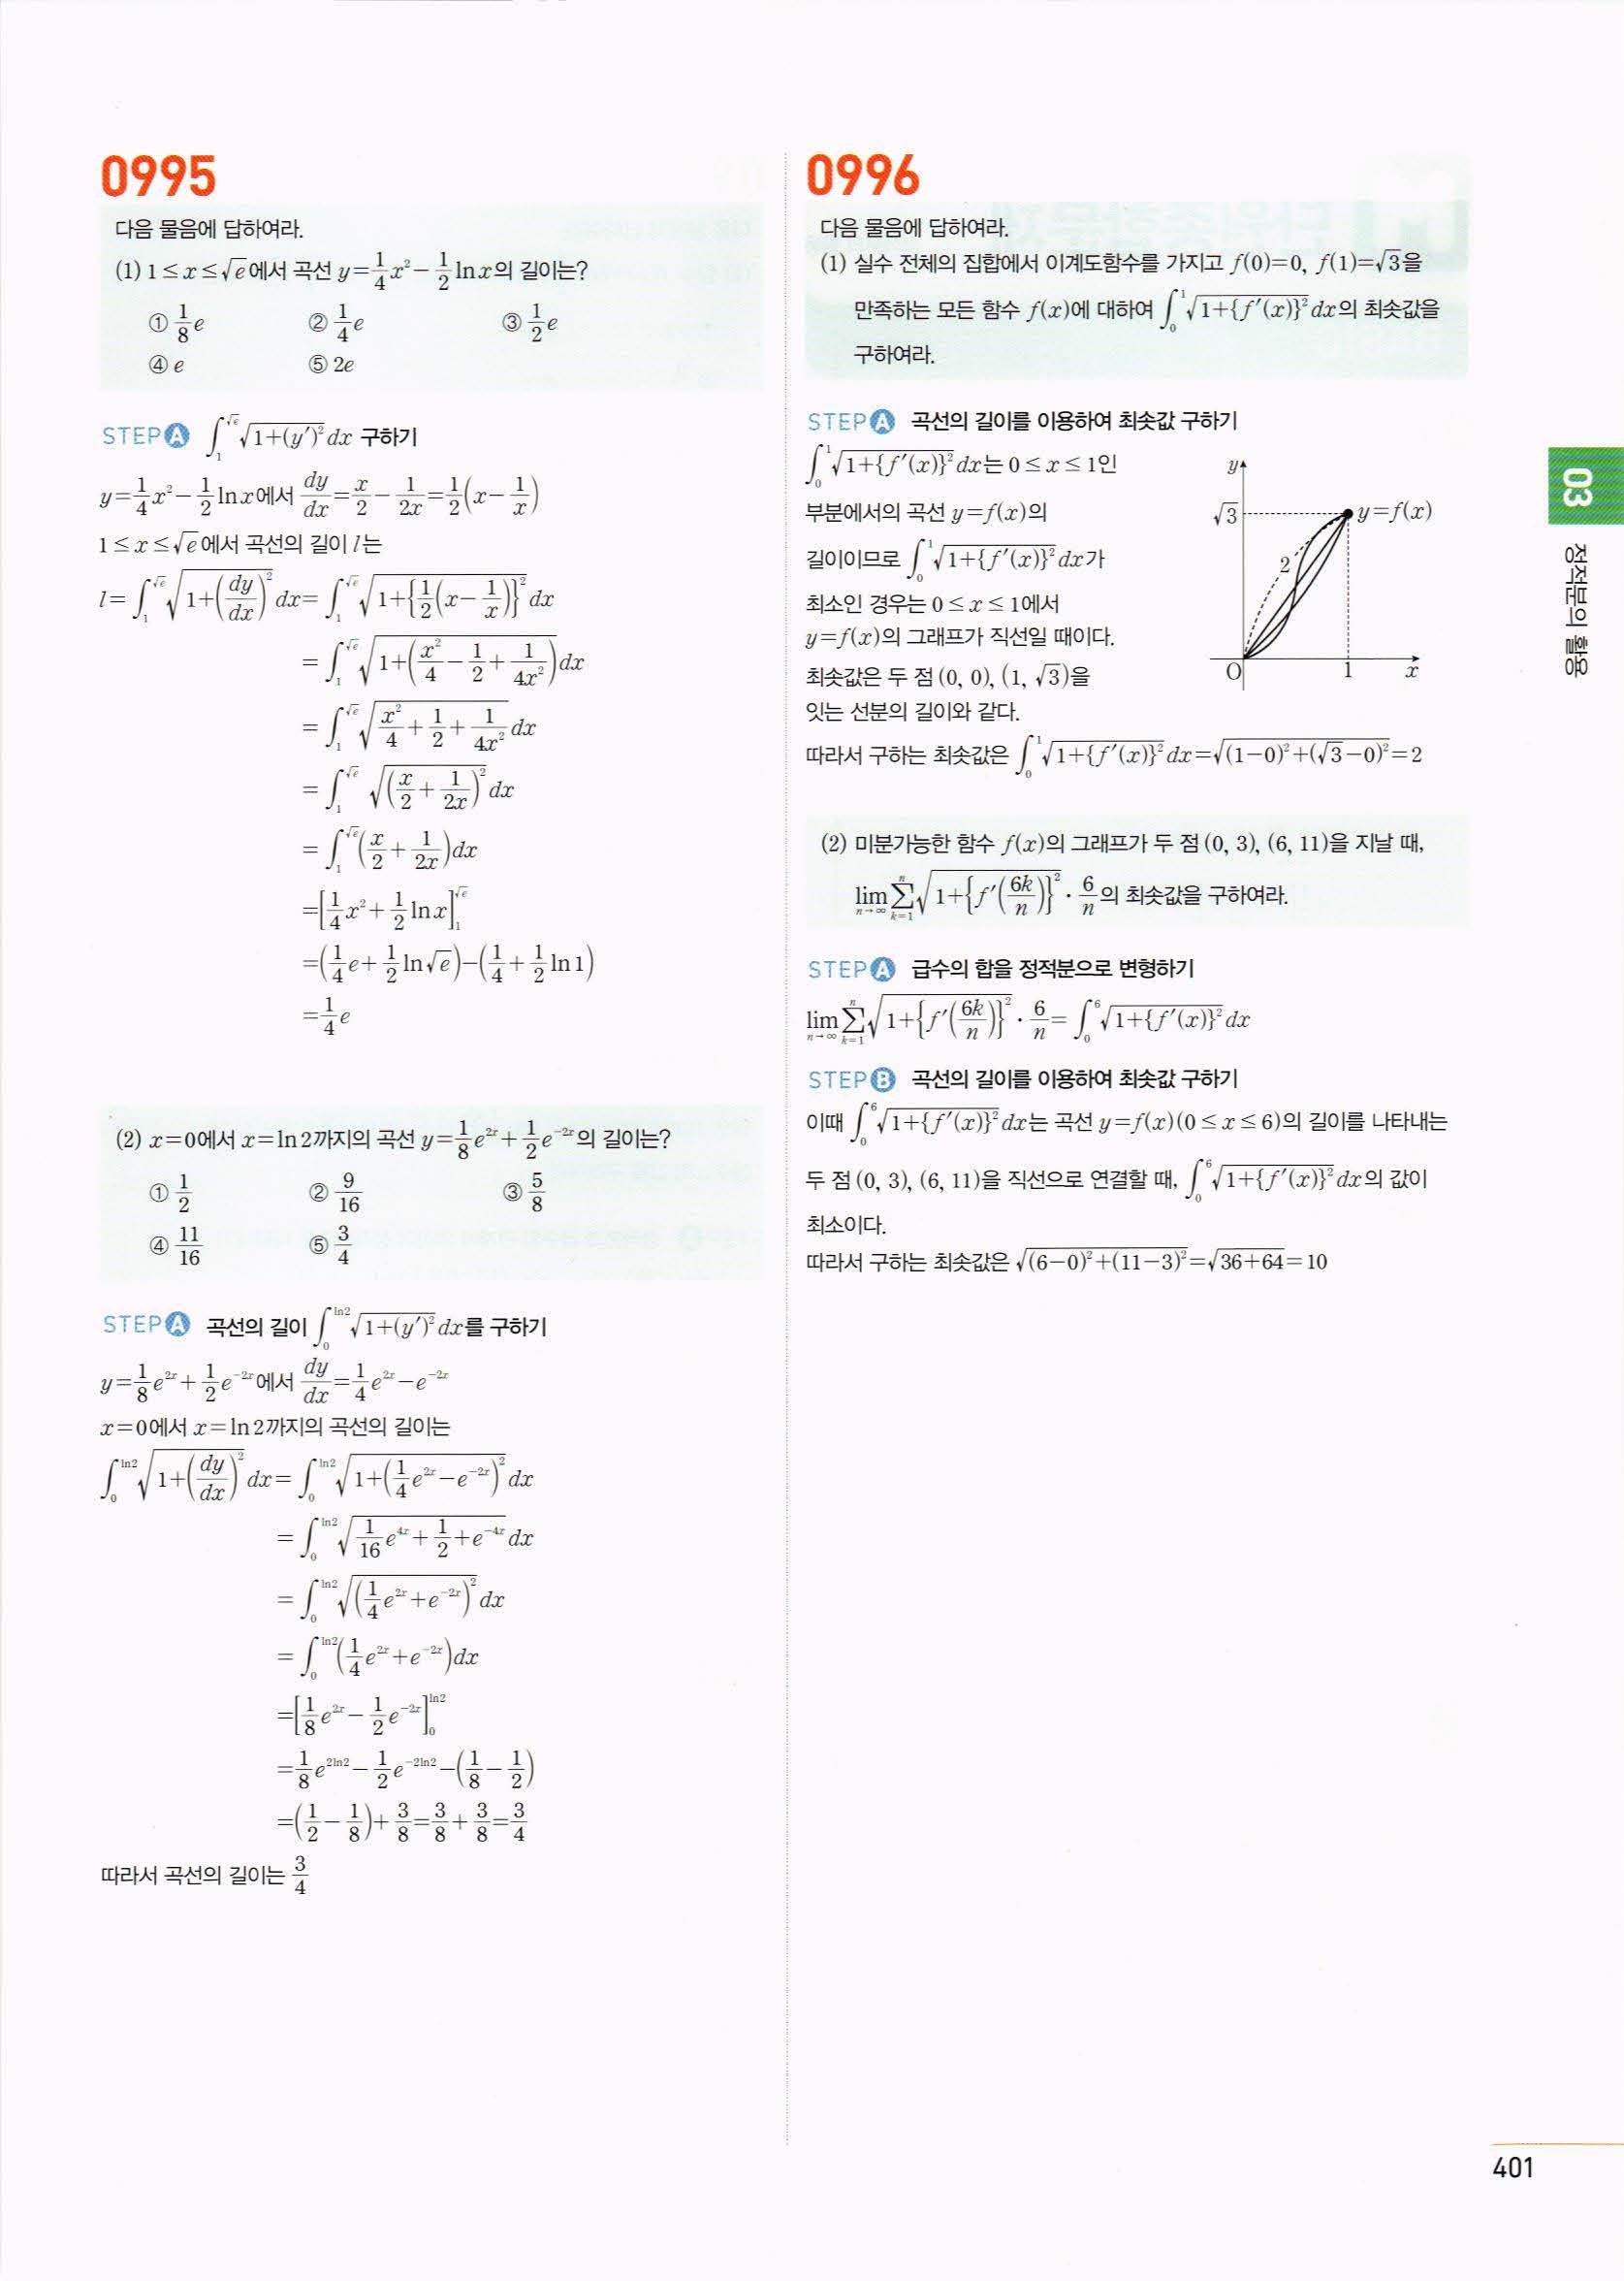 0995
다음 물음에 답하여라.
(1) 1≤x≤√e에서 곡선 y=1/4x²−1/2 ln x의 길이는?
① 1/8 e ② 1/4 e ③ 1/2 e
④ e ⑤ 2e
STEP A ∫₁^√e √(1+(y′)²) dx 구하기
y=1/4x²−1/2 ln x에서 dy/dx=x/2−1/2x=1/2(x−1/x)
1≤x≤√e에서 곡선의 길이 l는
l=∫₁^√e √(1+(dy/dx)²) dx=∫₁^√e √(1+{1/2(x−1/x)}²) dx
=∫₁^√e √(1+(x²/4−1/2+1/4x²)) dx
=∫₁^√e √(x²/4+1/2+1/4x²) dx
=∫₁^√e √((x/2+1/2x)²) dx
=∫₁^√e (x/2+1/2x)dx
=[1/4x²+1/2 ln x]₁^√e
=(1/4e+1/2 ln√e)−(1/4+1/2 ln1)
=1/4 e
(2) x=0에서 x=ln2까지의 곡선 y=1/8e^2x+1/2e^−2x의 길이는?
① 1/2 ② 9/16 ③ 5/8
④ 11/16 ⑤ 3/4
STEP A 곡선의 길이 ∫₀^ln2 √(1+(y′)²) dx를 구하기
y=1/8e^2x+1/2e^−2x에서 dy/dx=1/4e^2x−e^−2x
x=0에서 x=ln2까지의 곡선의 길이는
∫₀^ln2 √(1+(dy/dx)²) dx=∫₀^ln2 √(1+(1/4e^2x−e^−2x)²) dx
=∫₀^ln2 √(1/16e^4x+1/2+e^−4x) dx
=∫₀^ln2 √((1/4e^2x+e^−2x)²) dx
=∫₀^ln2 (1/4e^2x+e^−2x)dx
=[1/8e^2x−1/2e^−2x]₀^ln2
=1/8e^2ln2−1/2e^−2ln2−(1/8−1/2)
=(1/2−1/8)+3/8=3/8+3/8=3/4
따라서 곡선의 길이는 3/4
0996
다음 물음에 답하여라.
(1) 실수 전체의 집합에서 이계도함수를 가지고 f(0)=0, f(1)=√3을
만족하는 모든 함수 f(x)에 대하여 ∫₀¹ √(1+{f′(x)}²) dx의 최솟값을
구하여라.
STEP A 곡선의 길이를 이용하여 최솟값 구하기
∫₀¹ √(1+{f′(x)}²) dx는 0≤x≤1인
부분에서의 곡선 y=f(x)의
길이이므로 ∫₀¹ √(1+{f′(x)}²) dx가
최소인 경우는 0≤x≤1에서
y=f(x)의 그래프가 직선일 때이다.
최솟값은 두 점 (0, 0), (1, √3)을
잇는 선분의 길이와 같다.
y
√3
y=f(x)
2
O
1
x
따라서 구하는 최솟값은 ∫₀¹ √(1+{f′(x)}²) dx=√((1−0)²+(√3−0)²)=2
(2) 미분가능한 함수 f(x)의 그래프가 두 점 (0, 3), (6, 11)을 지날 때,
lim n→∞ Σ k=1 n √(1+{f′(6k/n)}²)·6/n의 최솟값을 구하여라.
STEP A 급수의 합을 정적분으로 변형하기
lim n→∞ Σ k=1 n √(1+{f′(6k/n)}²)·6/n=∫₀⁶ √(1+{f′(x)}²) dx
STEP B 곡선의 길이를 이용하여 최솟값 구하기
이때 ∫₀⁶ √(1+{f′(x)}²) dx는 곡선 y=f(x)(0≤x≤6)의 길이를 나타내는
두 점 (0, 3), (6, 11)을 직선으로 연결할 때, ∫₀⁶ √(1+{f′(x)}²) dx의 값이
최소이다.
따라서 구하는 최솟값은 √((6−0)²+(11−3)²)=√(36+64)=10
03
정적분의 활용
401